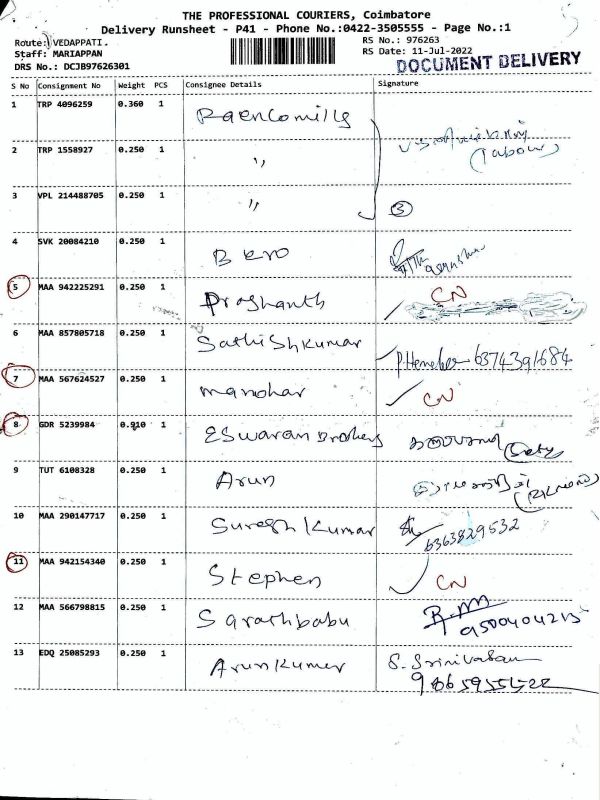 THE PROFESSIONAL COURIERS, Coimbatore
Delivery Runsheet - P41 - Phone No.:0422-3505555 - Page No.:1
Route: VEDAPPATI.
RS No.: 976263
Staff: MARIAPPAN
RS Date: 11-Jul-2022
DRS No.: DCJB97626301
DOCUMENT DELIVERY
S No Consignment No Weight PCS Consignee Details Signature
1 TRP 4096259 0.360 1
2 TRP 1558927 0.250 1 〃
(Labour)
3 VPL 214488705 0.250 1 〃 3
4 SVK 20084210 0.250 1
5 MAA 942225291 0.250 1 Prashanth CN
6 MAA 857805718 0.250 1 Sathishkumar 6374391684
7 MAA 567624527 0.250 1 manohar CN
8 GDR 5239984 0.910 1 Eswaran
9 TUT 6108328 0.250 1 Arun
10 MAA 290147717 0.250 1 Suresh Kumar 6363829532
11 MAA 942154340 0.250 1 Stephen CN
12 MAA 566798815 0.250 1 Sarathbabu
13 EDQ 25085293 0.250 1 ArunKumer S. Srinivasan